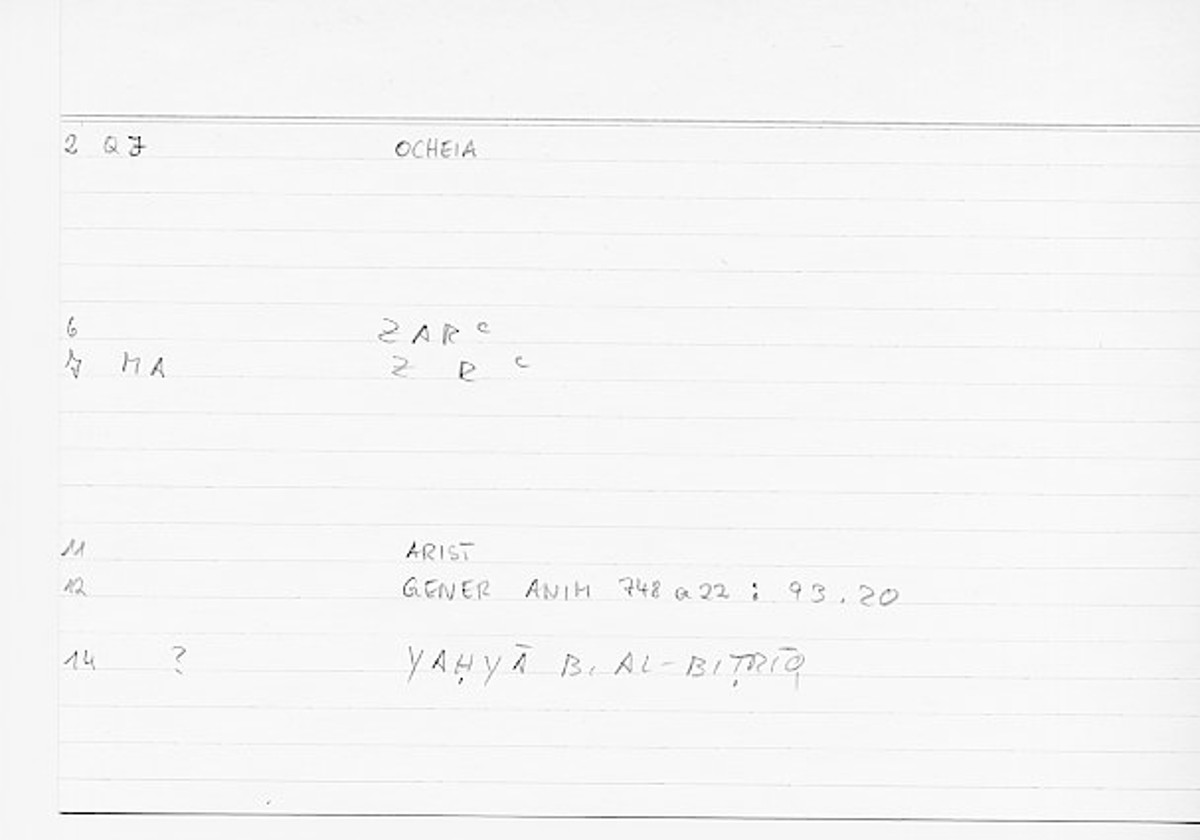 2 Q7 OCHEIA
6 ZAR ᶜ
7 MA Z R ᶜ
11 ARIST
12 GENER ANIM 748 a 22 : 93.20
14 ? YAḤYĀ B. AL-BIṬRĪQ